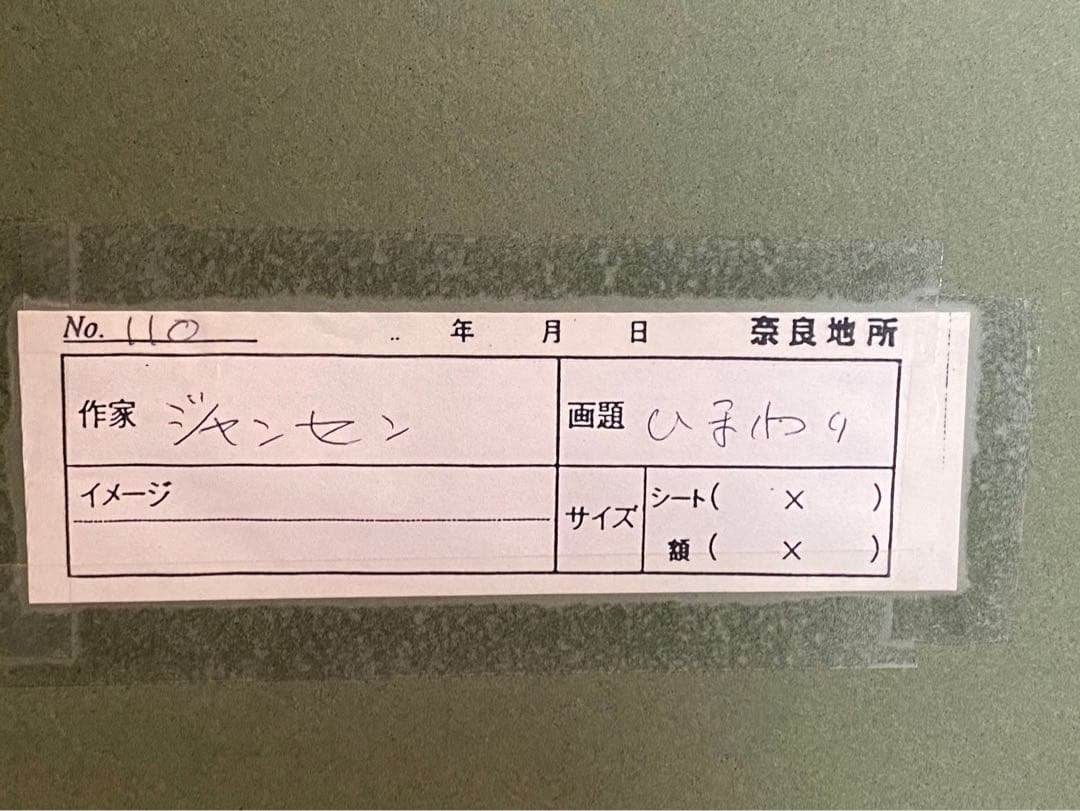 No. 110 年 月 日 奈良地所
作家 ジャンセン 画題 ひまわり
イメージ サイズ シート( × )
額 ( × )